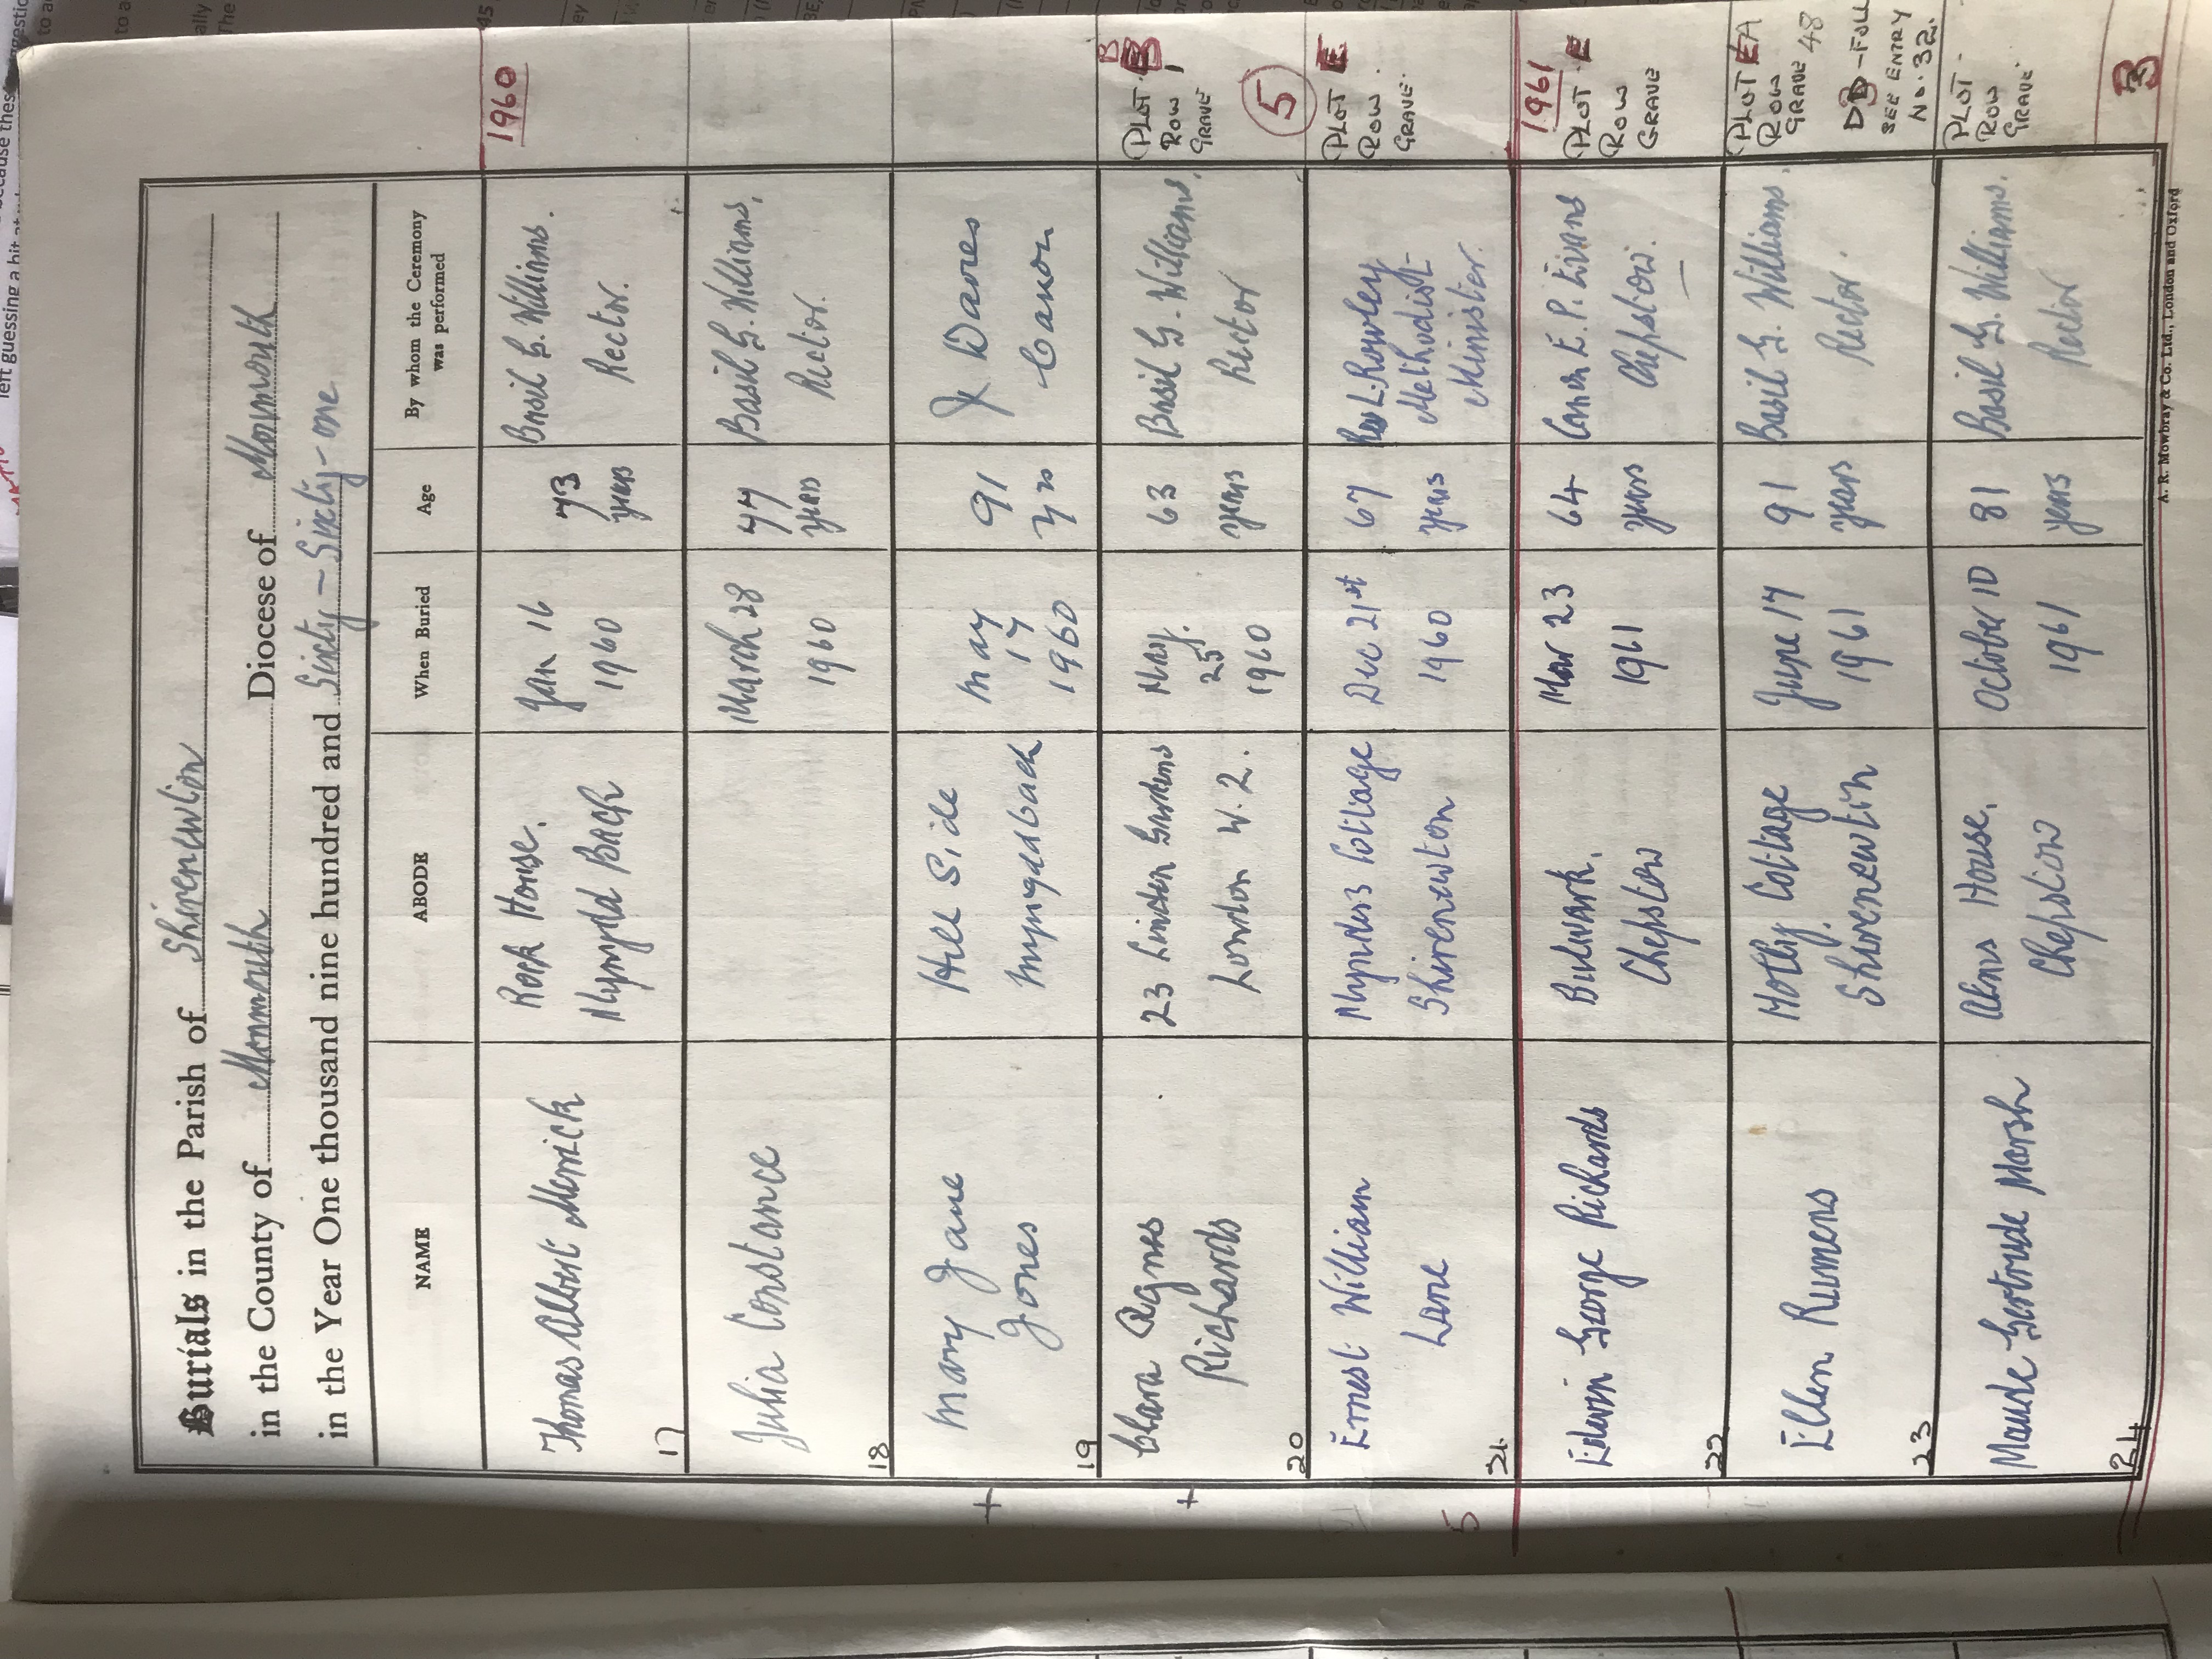 Burials in the Parish of Shirenewton
in the County of Monmouth Diocese of Monmouth
in the Year One thousand nine hundred and Sixty - Sixty-one
NAME ABODE When Buried Age By whom the Ceremony was performed
1960
Thomas Albert Merrick
17
Rock House.
Mynydd Bach
Jan 16
1960
73
years
Basil G. Williams.
Rector.
Julia Constance
18
March 28
1960
77
years
Basil G. Williams,
Rector.
+
Mary Jane
Jones
19
Hill Side
Mynyddbach
May
17
1960
91
yrs
J Davies
Canon
+
Clara Agnes
Richards
20
23 Linden Gardens
London W.2.
May.
25
1960
63
years
Basil G. Williams,
Rector
PLOT B
ROW
GRAVE
5
Ernest William
Lane
21.
Cottage
Shirenewton
Dec 21st
1960
67
years
Rev L. Rowley
Methodist
Minister.
PLOT E
ROW
GRAVE
5
1961
Edwin George Richards
22
Bulwark,
Chepstow
Mar 23
1961
64
years
Canon E.P. Evans
Chepstow.
PLOT E
ROW
GRAVE
Ellen Rumens
23
Cottage
Shirenewton
June 17
1961
91
years
Basil G. Williams.
Rector.
PLOT EA
ROW
GRAVE 48
SEE ENTRY
No. 32.
Maude Gertrude Marsh
24
Alms House.
Chepstow
October 10
1961
81
years
Basil G. Williams.
Rector
PLOT
ROW
GRAVE
B
A. R. Mowbray & Co. Ltd., London and Oxford